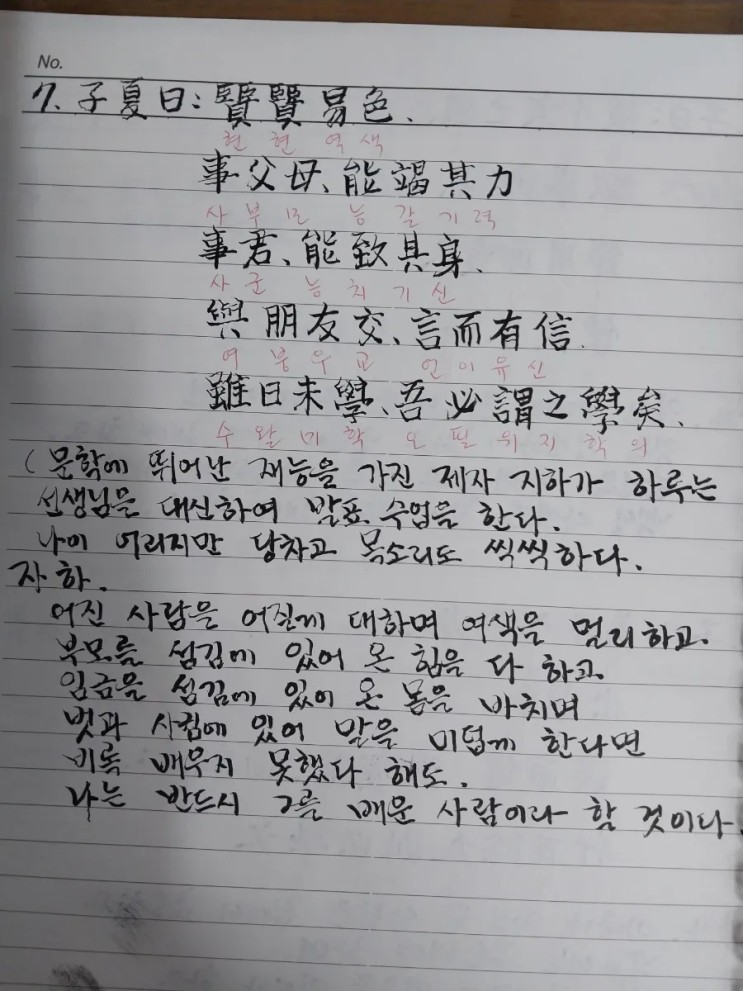 No.
7. 子夏曰: 賢賢易色.
현 현 역 색
事父母、能竭其力
사 부 모 능 갈 기 력
事君、能致其身.
사 군 능 치 기 신
與朋友交、言而有信.
여 붕 우 교 언 이 유 신
雖曰未學、吾必謂之學矣.
수 왈 미 학 오 필 위 지 학 의
(문학에 뛰어난 재능을 가진 제자 지하가 하루는
선생님을 대신하여 발표 수업을 한다.
나이 어리지만 당차고 목소리도 씩씩하다.
자하.
어진 사람을 어질게 대하며 여색을 멀리하고.
부모를 섬김에 있어 온 힘을 다 하고.
임금을 섬김에 있어 온 몸을 바치며
벗과 사귐에 있어 말을 미덥게 한다면
비록 배우지 못했다 해도.
나는 반드시 그를 배운 사람이라 할 것이다.